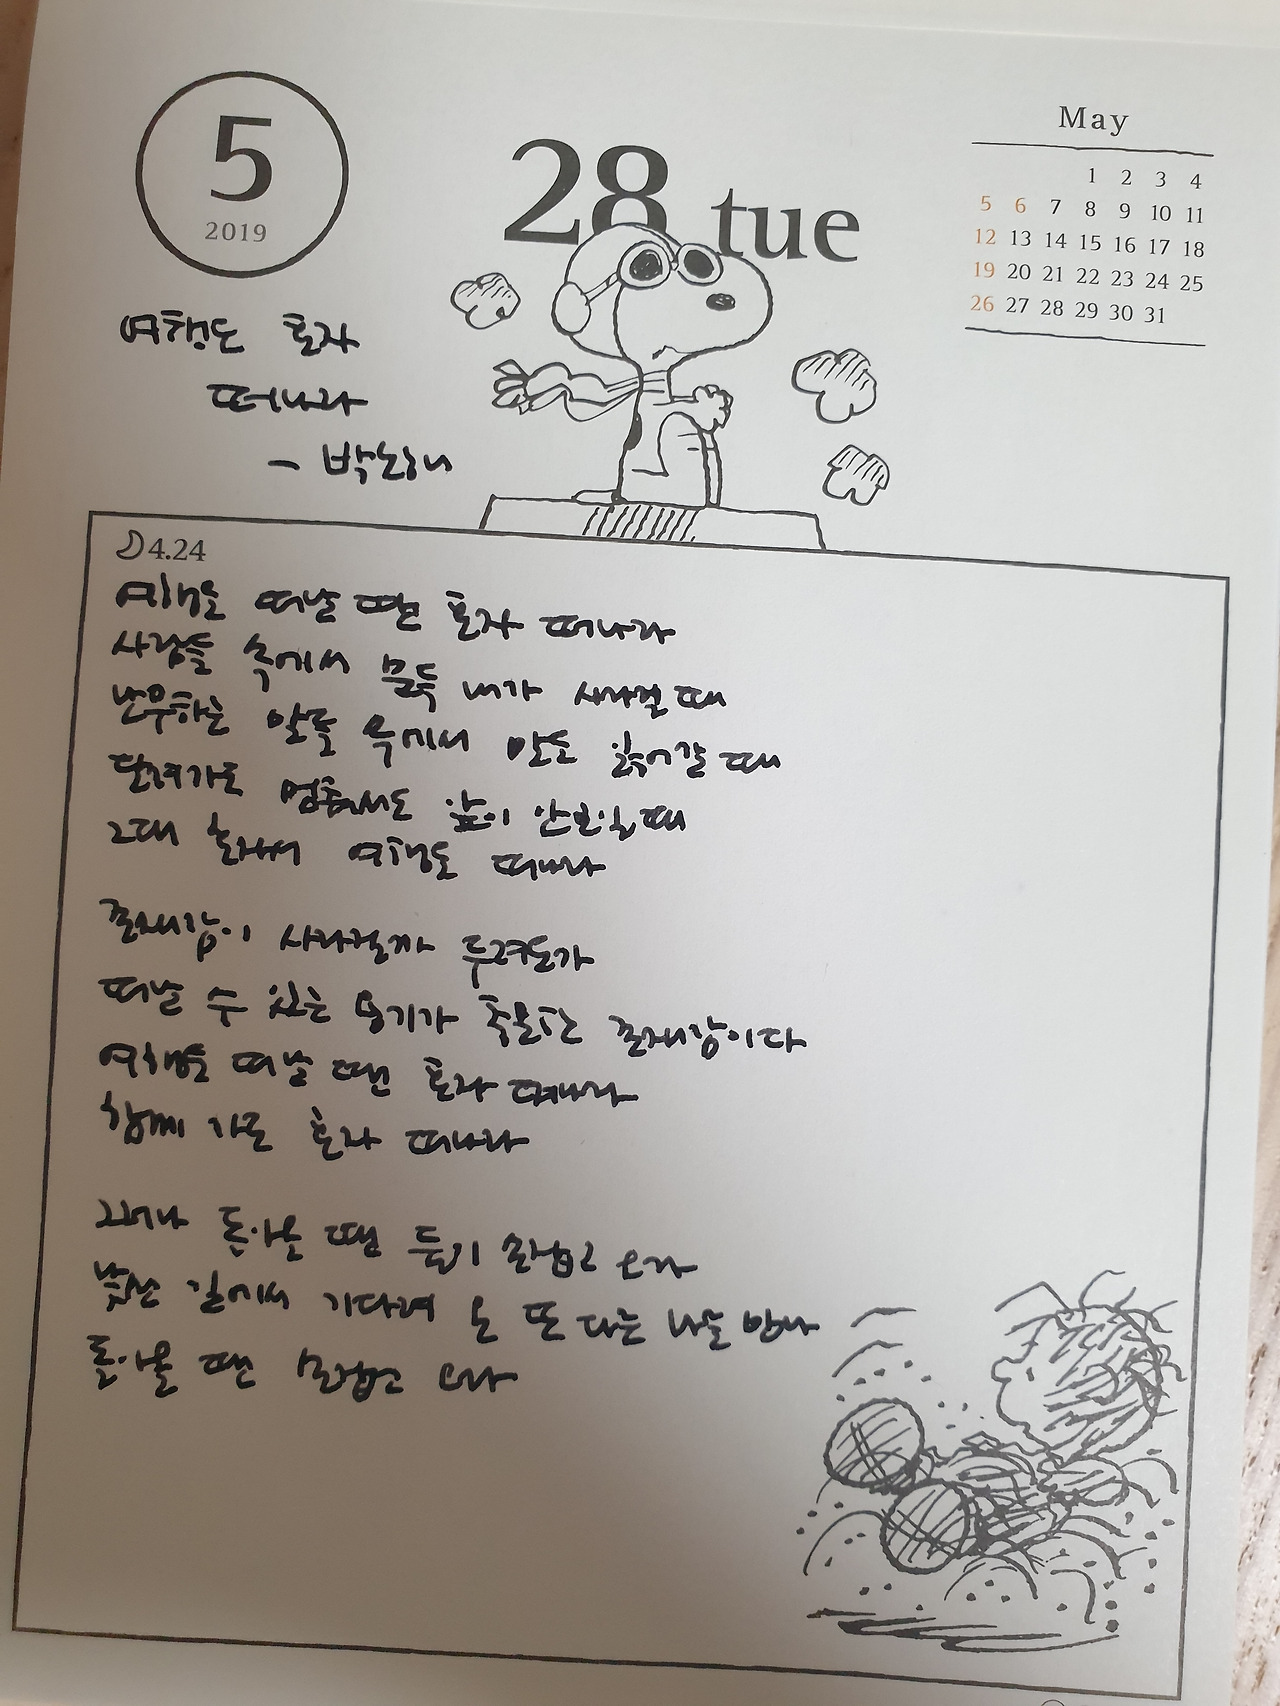 5
2019
28 tue
May
1 2 3 4
5 6 7 8 9 10 11
12 13 14 15 16 17 18
19 20 21 22 23 24 25
26 27 28 29 30 31
여행도 혼자
떠나라
- 박노해
4.24
여행을 떠날 땐 혼자 떠나라
사람들 속에서 문득 내가 사라질 때
난무하는 말들 속에서 말을 잃어갈 때
달려가도 멈춰서도 앞이 안보일 때
그대 혼자서 여행을 떠나라
존재감이 사라질까 두려운가
떠날 수 있는 용기가 충분한 존재감이다
여행을 떠날 땐 혼자 떠나라
함께 가도 혼자 떠나라
그러나 돌아올 땐 둘이 손잡고 오라
낯선 길에서 기다려 온 또 다른 나를 만나
돌아올 땐 손잡고 오라